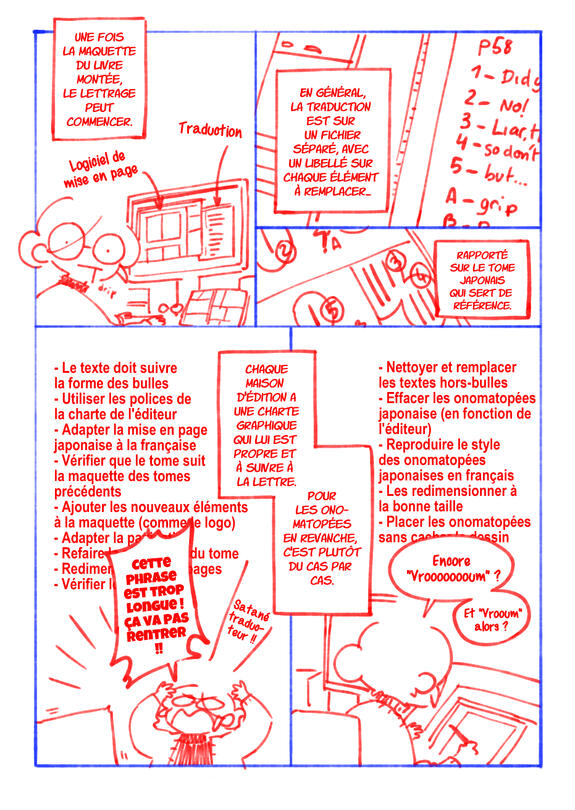 UNE FOIS
LA MAQUETTE
DU LIVRE
MONTÉE,
LE LETTRAGE
PEUT
COMMENCER.
Traduction
Logiciel de
mise en page
drip
EN GÉNÉRAL,
LA TRADUCTION
EST SUR
UN FICHIER
SÉPARÉ, AVEC
UN LIBELLÉ SUR
CHAQUE ÉLÉMENT
À REMPLACER...
P58
1 - Did
2 - No!
3 - Liar,
4 - so don't
5 - but...
A - grip
B -
2
?
A
3
4
5
RAPPORTÉ
SUR LE TOME
JAPONAIS
QUI SERT DE
RÉFÉRENCE.
- Le texte doit suivre
la forme des bulles
- Utiliser les polices de
la charte de l'éditeur
- Adapter la mise en page
japonaise à la française
- Vérifier que le tome suit
la maquette des tomes
précédents
- Ajouter les nouveaux éléments
à la maquette (comme le logo)
- Adapter la
- Refaire du tome
- pages
- Vérifier
CHAQUE
MAISON
D'ÉDITION A
UNE CHARTE
GRAPHIQUE
QUI LUI EST
PROPRE ET
À SUIVRE À
LA LETTRE.
POUR
LES ONO-
MATOPÉES
EN REVANCHE,
C'EST PLUTÔT
DU CAS PAR
CAS.
- Nettoyer et remplacer
les textes hors-bulles
- Effacer les onomatopées
japonaise (en fonction de
l'éditeur)
- Reproduire le style
des onomatopées
japonaises en français
- Les redimensionner à
la bonne taille
- Placer les onomatopées
sans cacher le dessin
CETTE
PHRASE
EST TROP
LONGUE !
ÇA VA PAS
RENTRER
!!
Satané
traduc-
teur !!
Encore
"Vroooooooum" ?
Et "Vrooum"
alors ?